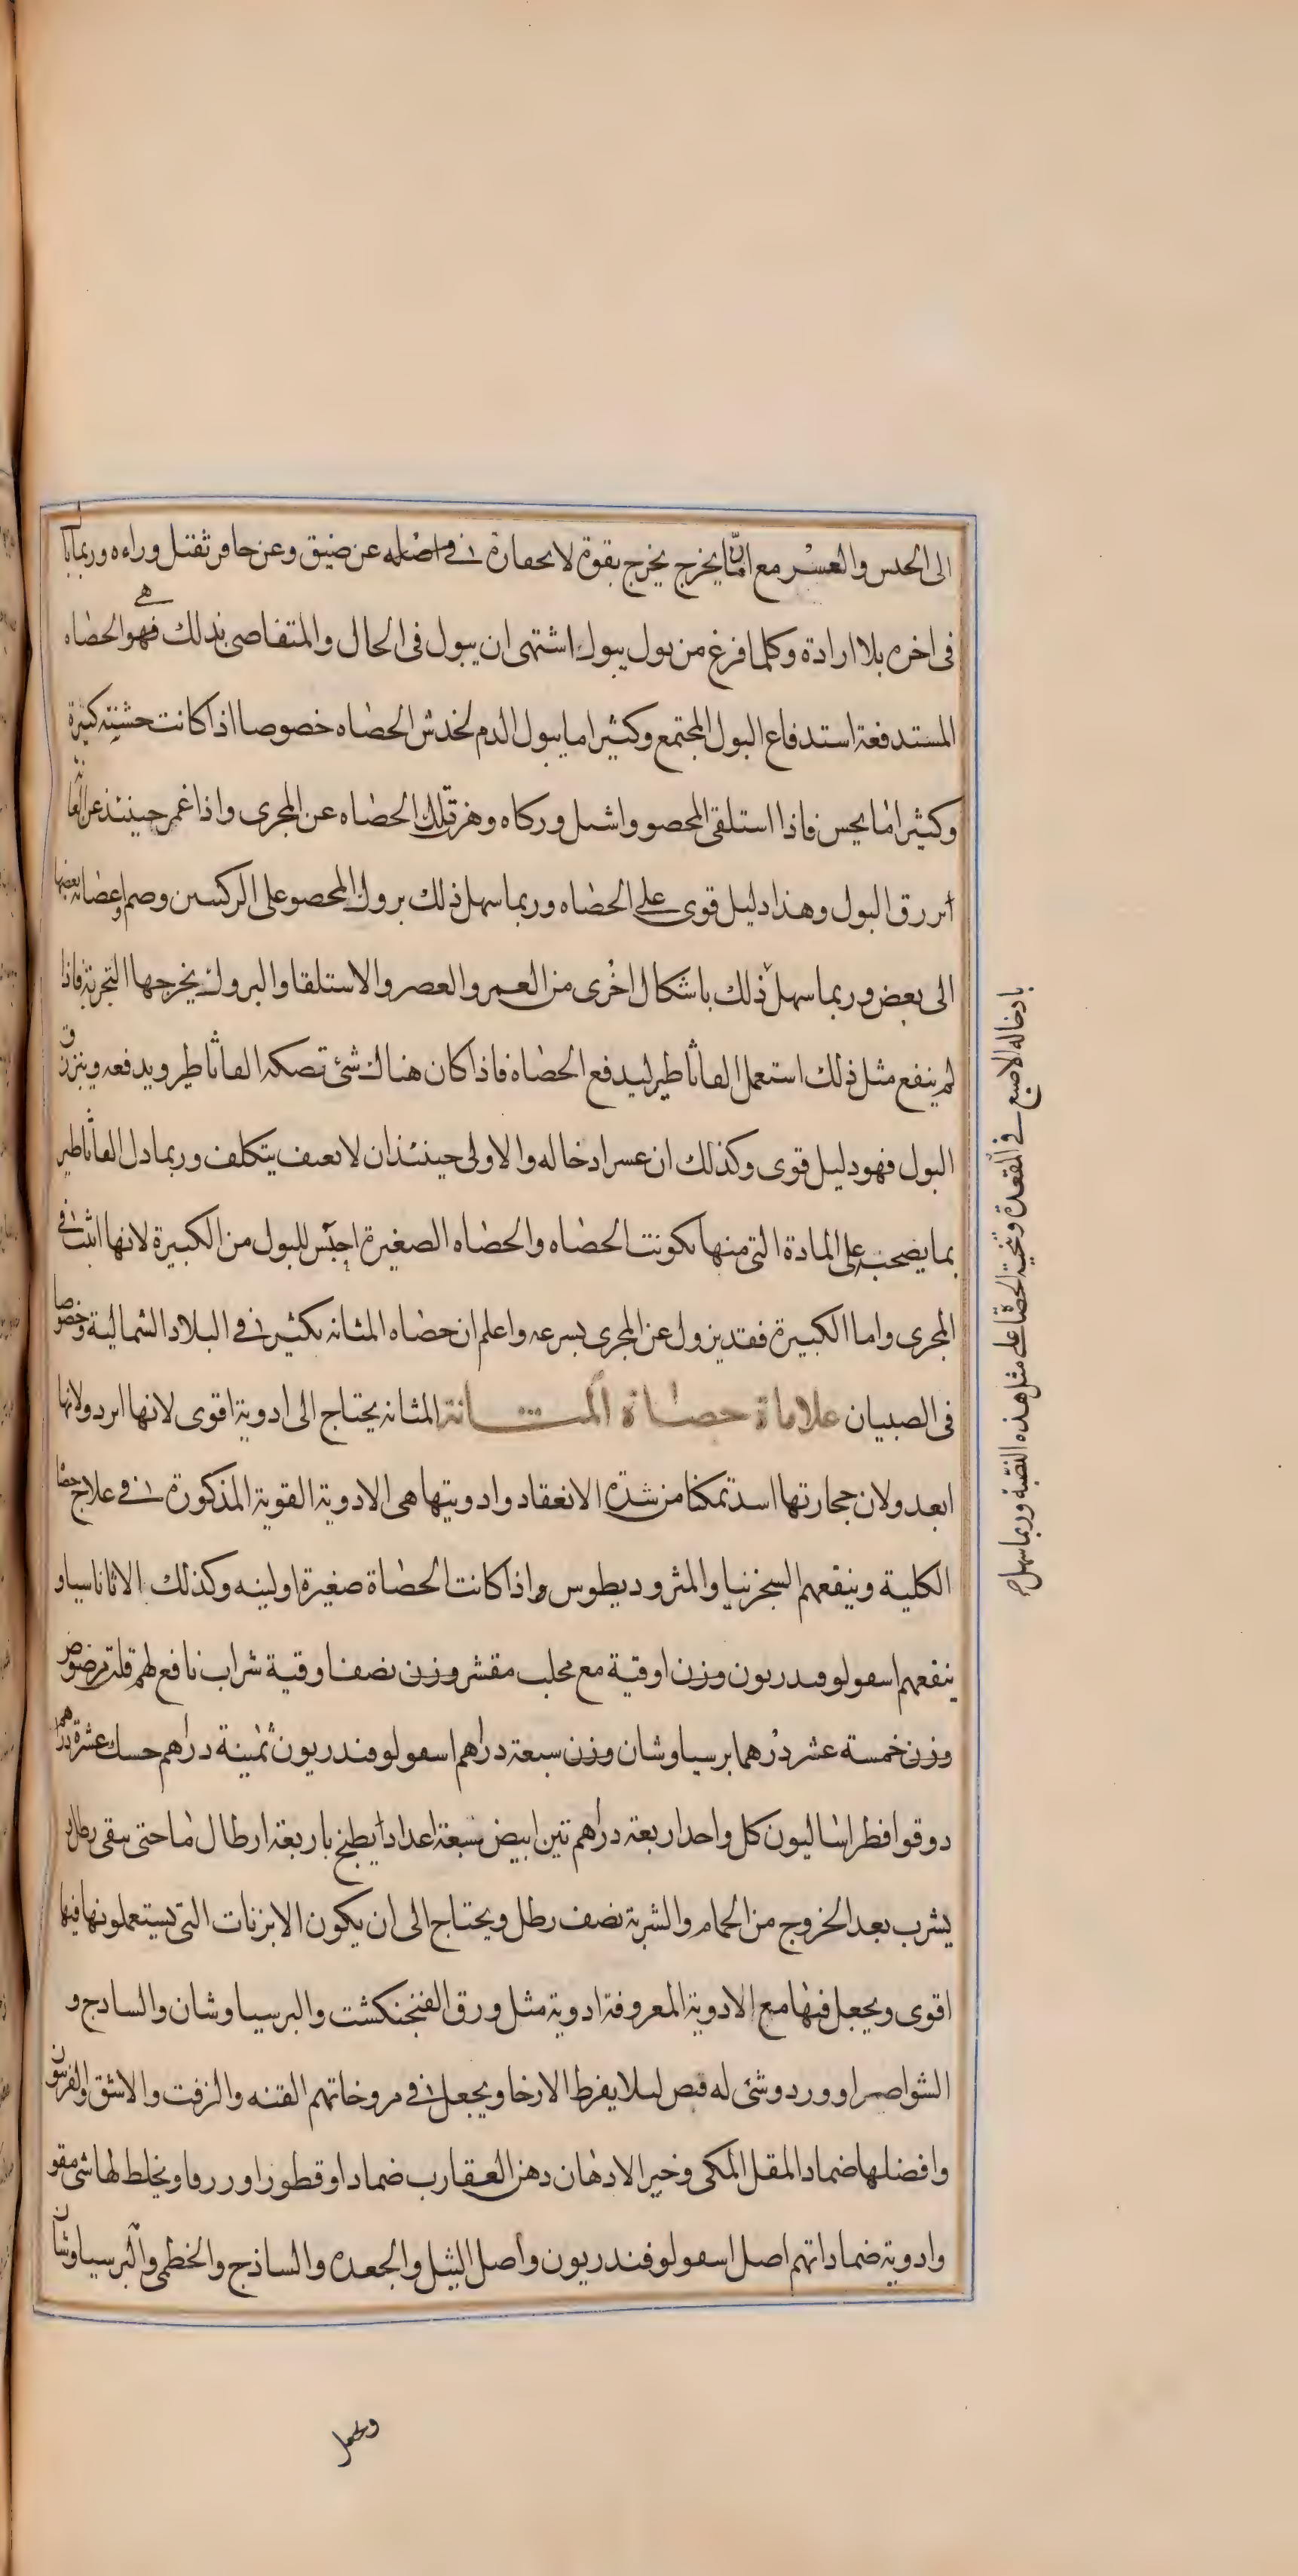 الى الحدس والعسر مع ان ما يخرج يخرج بقوة لا بحفارة في اصله عن ضيق وعن حافر ثقتل وراءه وربما بال
فى اخره بلا ارادة وكلما فرغ من بول يبوله اشتهى ان يبول فى الحال والمتفاصى بذلك فهو هى الحصاه
المستدفعة استدفاع البول المجتمع وكثيرا ما يبول الدم لخدش الحصاه خصوصا اذا كانت خشنة كبيرة
وكثيرا ما يحبس فاذا استلقى المحصو واشيل وركاه وهز تلك الحصاه عن المجرى واذا غمر حينئذ عن العانة
انزرق البول وهذا دليل قوى على الحصاه وربما سهل ذلك بروك المحصو على الركبتين وضم اعضائه بعضها
الى بعض وربما سهل ذلك باشكال اخرى من الغمز والعصر والاستلقا والبروك يخرجها التجربة فاذا
لم ينفع مثل ذلك استعمل القاثاطير ليدفع الحصاه فاذا كان هناك شئ تصكه القاثاطير ويدفعه وينزرق
البول فهو دليل قوى وكذلك ان عسر ادخاله والاولى حينئذ ان لا يعنف بتكلف وربما دل القاثاطير
بما يصحبه على المادة التى منها تكونت الحصاه والحصاه الصغيرة احبس للبول من الكبيرة لانها انشب فى
المجرى واما الكبيرة فقد يزول عن المجرى بسرعه واعلم ان حصاه المثانه تكثر في البلاد الشمالية وخصوصا
فى الصبيان علاماة حصاة المثانة المثانه يحتاج الى ادوية اقوى لانها ابرد ولانها
ابعد ولان حجارتها اشد تمكنا من شدة الانعقاد وادويتها هى الادوية القوية المذكورة في علاج حصا
الكلية وينفعهم السجزنيا والمثروديطوس واذا كانت الحصاة صغيرة او لينه وكذلك الاثاناسيا و
ينفعهم اسقولوقندريون وزن اوقية مع محلب مقشر وزن نصف اوقية شراب نافع لهم قلت مرضوض
وزن خمسة عشر درهما برسياوشان وزن سبعة دراهم اسقولوقندريون ثمنية دراهم حسك عشرة دراهم
دوقوا فطراساليون كل واحد اربعة دراهم تين ابيض سبعة اعدادا يطبخ باربعة ارطال ما حتى يبقى رطل و
يشرب بعد الخروج من الحمام والشربة نصف رطل ويحتاج الى ان يكون الابزنات التى يستعملونها فيها
اقوى ويجعل فيها مع الادوية المعروفة ادوية مثل ورق الفنجنكشت والبرسياوشان والسادج و
الشواصرا وورد وشئ له قبض لىلا يفرط الارخا ويجعل في مروخاتهم القنه والزفت والاشق والفربيون
وافضلها ضماد المقل المكى وخير الادهان دهن العقارب ضمادا وقطورا وزروقا ويخلط لها شئ مقو
وادوية ضماداتهم اصل اسقولوقندريون واصل الثيل والجعده والساذج والخطمى والبرسياوشان
بادخاله الاصبع في المقعدة وتنحية الحصاة على مثل هذه النصبة وربما سهل